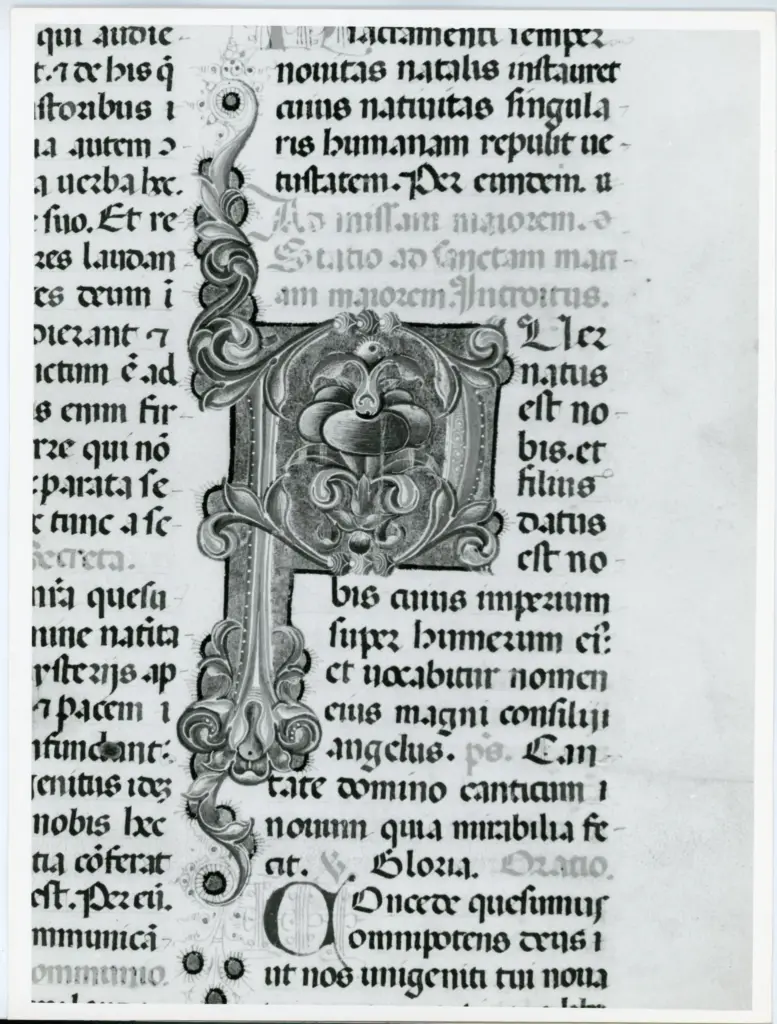 qui audie
t. ⁊ de his q̄
storibus i
ia autem
a uerba hec.
suo. Et re
res laudan
es deum i
dierant ⁊
ictum ē ad
s enim fir
rre qui nō
parata se
c tunc a se
Secreta.
nr̄a quesu
nine natita
ysterijs ap
⁊ pacem i
nfundant:
genitus idez
nobis hec
tia cōferat
est. Per eū.
mmunicā
ommunio.
sacramenti semper
nouitas natalis instauret
cuius natiuitas singula
ris humanam repulit ue
tustatem. Per eundem.
Ad missam maiorem.
Statio ad sanctam mari
am maiorem. Introitus.
PUer
natus
est no
bis. et
filius
datus
est no
bis cuius imperium
super humerum ei:
et uocabitur nomen
eius magni consilij
angelus. ps. Can
tate domino canticum
nouum quia mirabilia fe
cit. V. Gloria. Oratio.
COncede quesumus
omnipotens deus
ut nos unigeniti tui noua